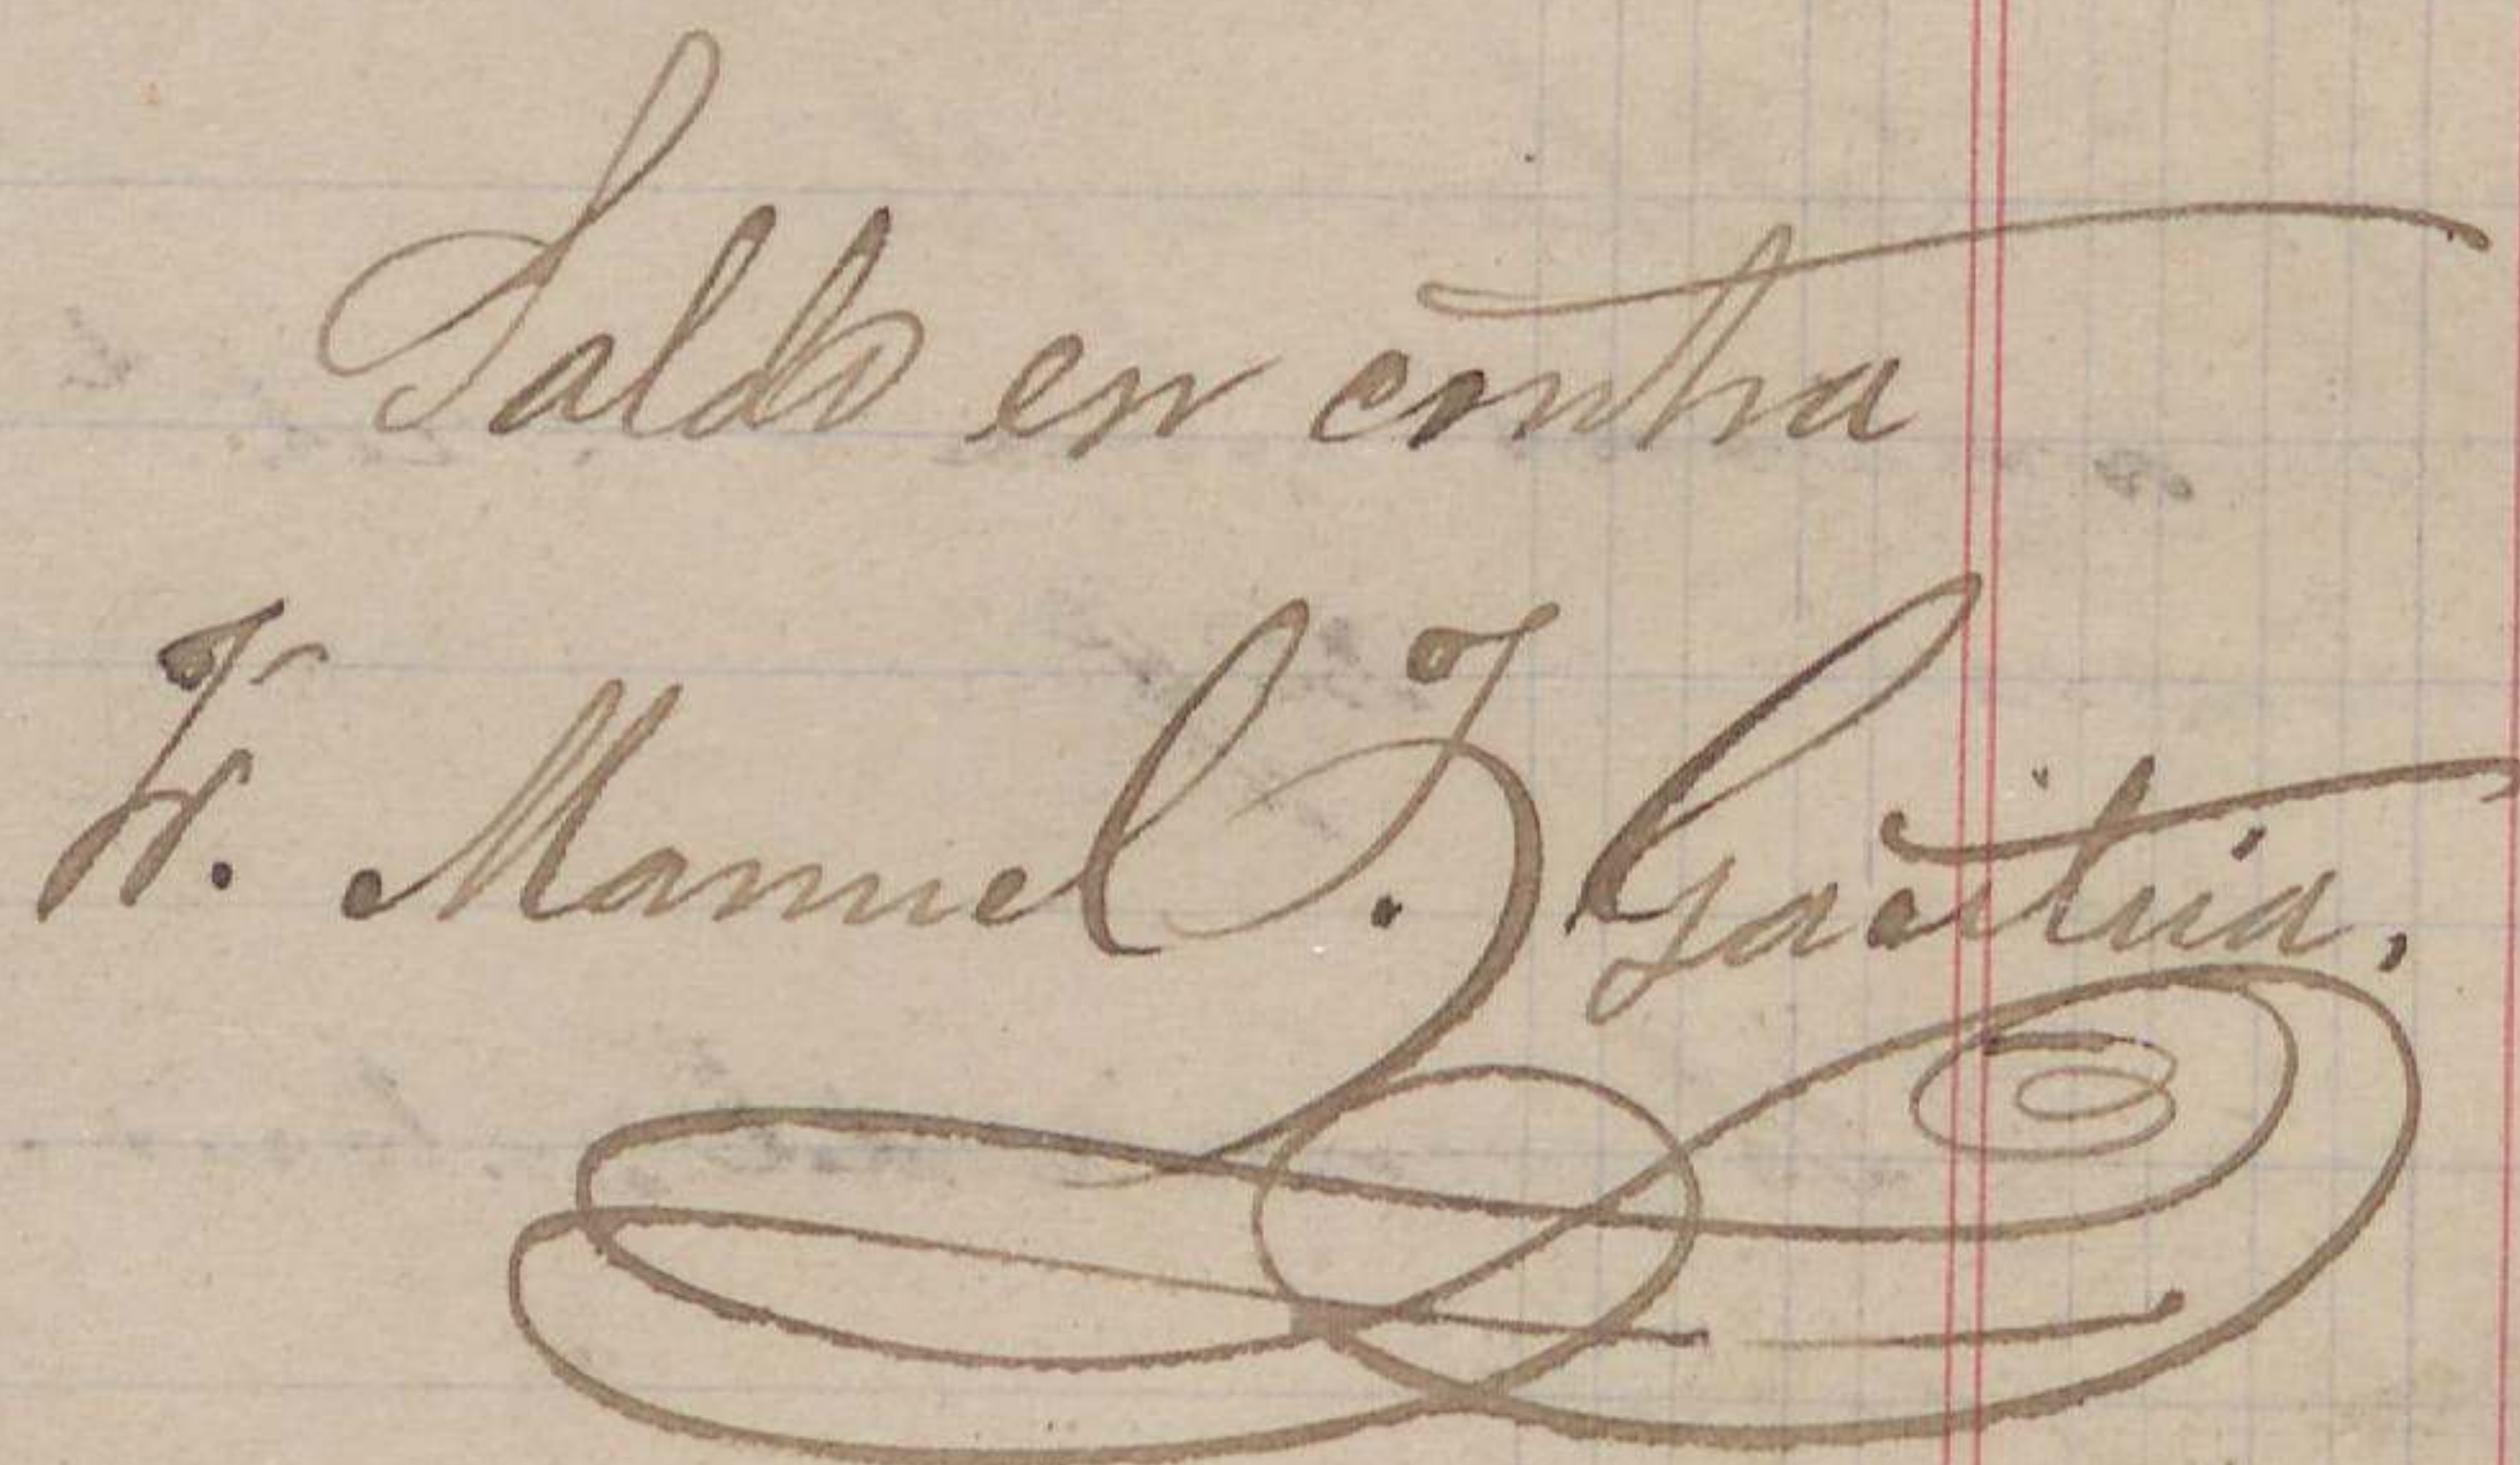 Saldo en contra
W. Manuel J. Gaëtúa.